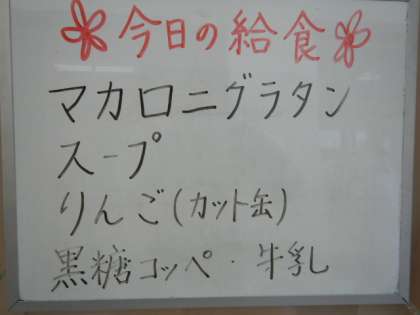 今日の給食
マカロニグラタン
スープ
りんご(カット缶)
黒糖コッペ・牛乳